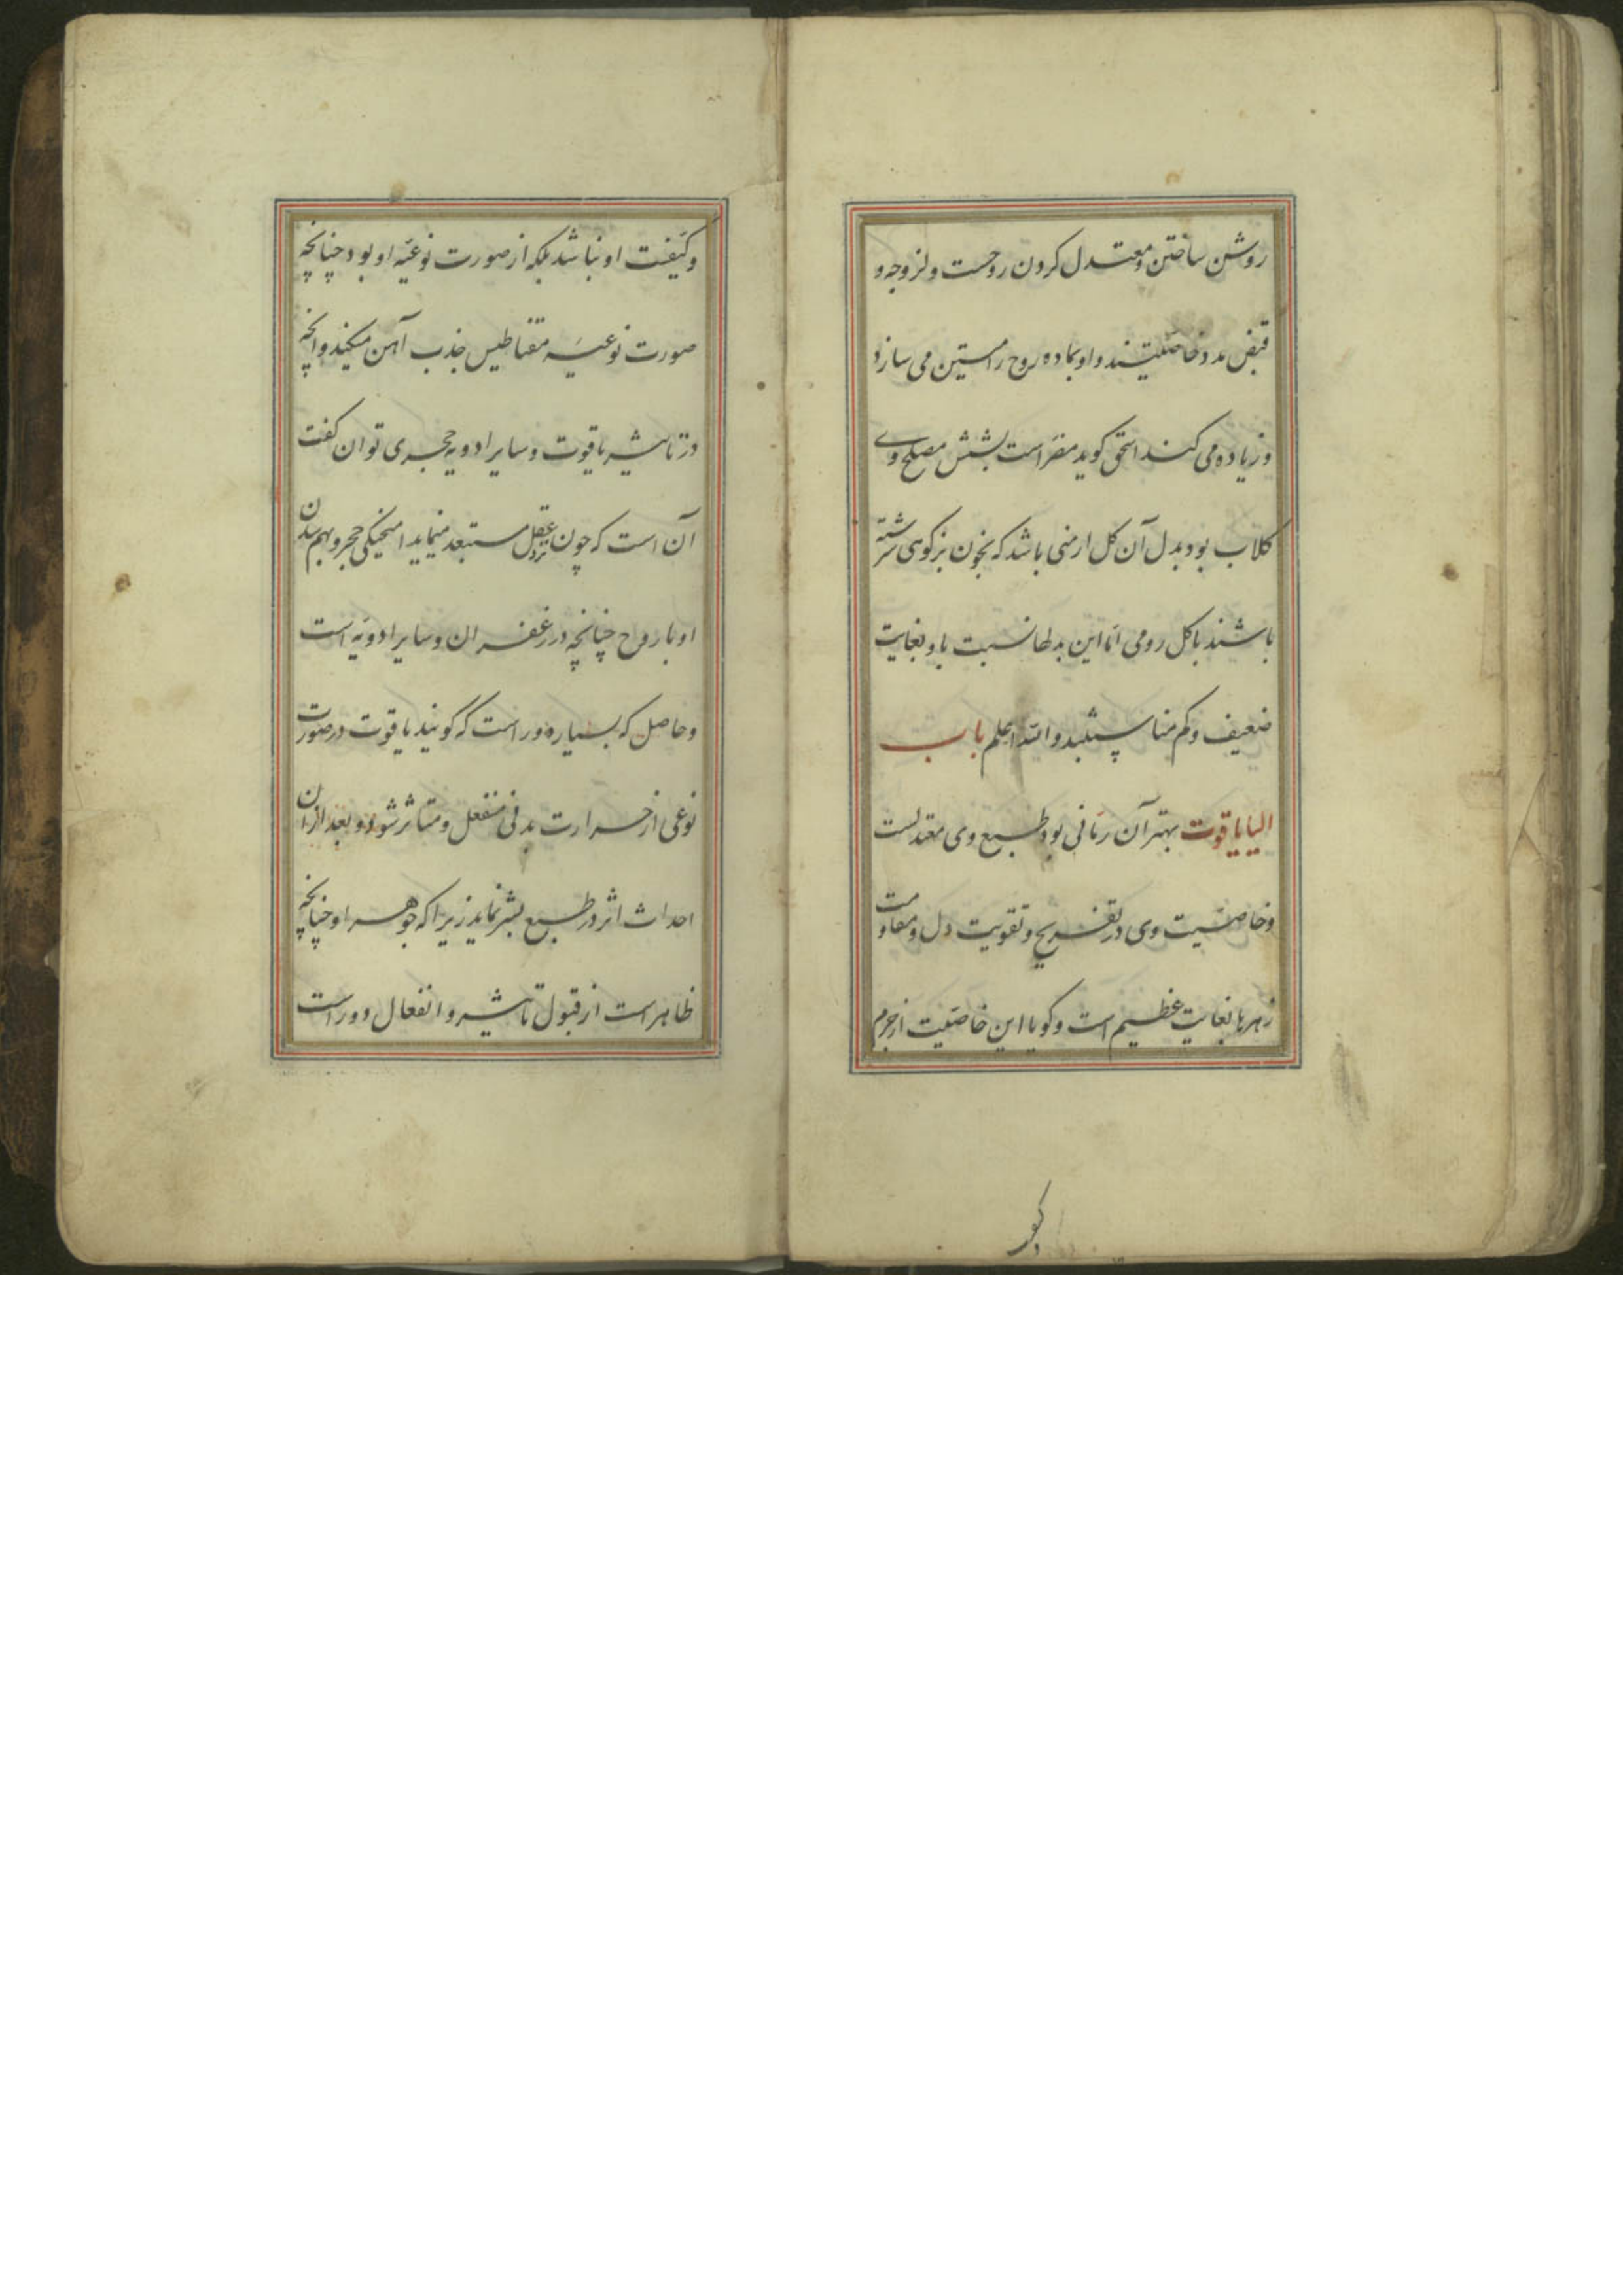 روشن ساختن و معتدل کردن روحست و لزوجه و
قبض مدد خاصیتند و او بماده روح را متین می سازد
و زیاده می کند اسحق کوید مضر است بشش مصلح وے
کلاب بود بدل آن کل ارمنی باشد که بخون بز کوهی سرشته
باشند با کل رومی اما این بدلها نسبت باو بغایت
ضعیف و کم مناسبتند والله اعلم باب
الیا یاقوت بهتر آن رمانی بود طبع وی معتدلست
و خاصیت وی در تفریح و تقویت دل و مقاومت
زهرها بغایت عظیم است و کویا این خاصیت از جرم
و کیفیت او نباشد بلکه از صورت نوعیه او بود چنانچه
صورت نوعیه مقناطیس جذب آهن میکند و آنچه
در تاثیر یاقوت و سایر ادویه حجری توان کفت
آن است که چون نزد عقل مستبعد مینماید امیختکی حجر و بهم شدن
او با روح چنانچه در زعفران و سایر ادویه است
و حاصل که بسیار دور است که کویند یاقوت در صورت
نوعی از حرارت بدنی منفعل و متاثر شود و بعد از آن
احداث اثر در طبع بشر نماید زیرا که جوهر او چنانچه
ظاهر است از قبول تاثیر و انفعال دور است